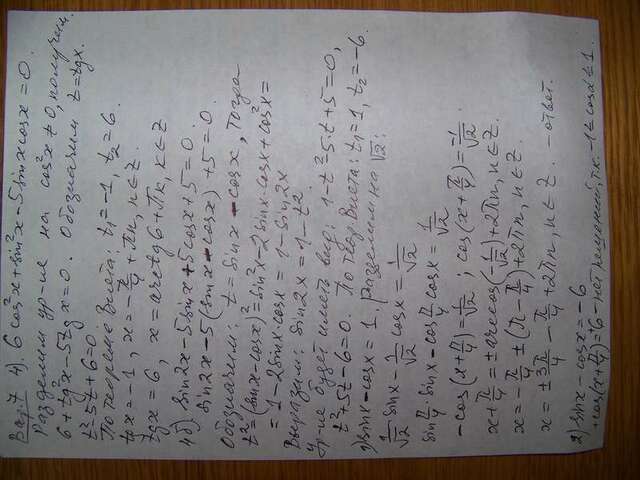 Вар. 7 4). 6cos²x + sin²x - 5sinx cosx = 0.
Разделим ур-ие на cos²x ≠ 0, получим
6 + tg²x - 5tgx = 0. Обозначим t = tgx.
t² - 5t + 6 = 0.
По теореме Виета: t₁ = -1, t₂ = 6.
tgx = -1, x = -π/4 + πn, n∈Z.
tgx = 6, x = arctg6 + πk, k∈Z
4б) sin2x - 5sinx + 5cosx + 5 = 0.
sin2x - 5(sinx - cosx) + 5 = 0.
Обозначим: t = sinx - cosx, тогда
t² = (sinx - cosx)² = sin²x - 2sinx·cosx + cos²x =
= 1 - 2sinx·cosx = 1 - sin2x
Выразим: sin2x = 1 - t².
Ур-ие будет иметь вид: 1 - t² - 5t + 5 = 0,
t² + 5t - 6 = 0. По теор. Виета: t₁ = 1, t₂ = -6.
1) sinx - cosx = 1. Разделим на √2:
1/√2 sinx - 1/√2 cosx = 1/√2
sin π/4 sinx - cos π/4 cosx = 1/√2
-cos(x + π/4) = 1/√2; cos(x + π/4) = -1/√2
x + π/4 = ± arccos(-1/√2) + 2πn, n∈Z.
x = -π/4 ± (π - π/4) + 2πn, n∈Z
x = ± 3π/4 - π/4 + 2πn, n∈Z. - ответ.
2) sinx - cosx = -6
+cos(x + π/4) = 6 - нет решений, т.к. -1 ≤ cosα ≤ 1.